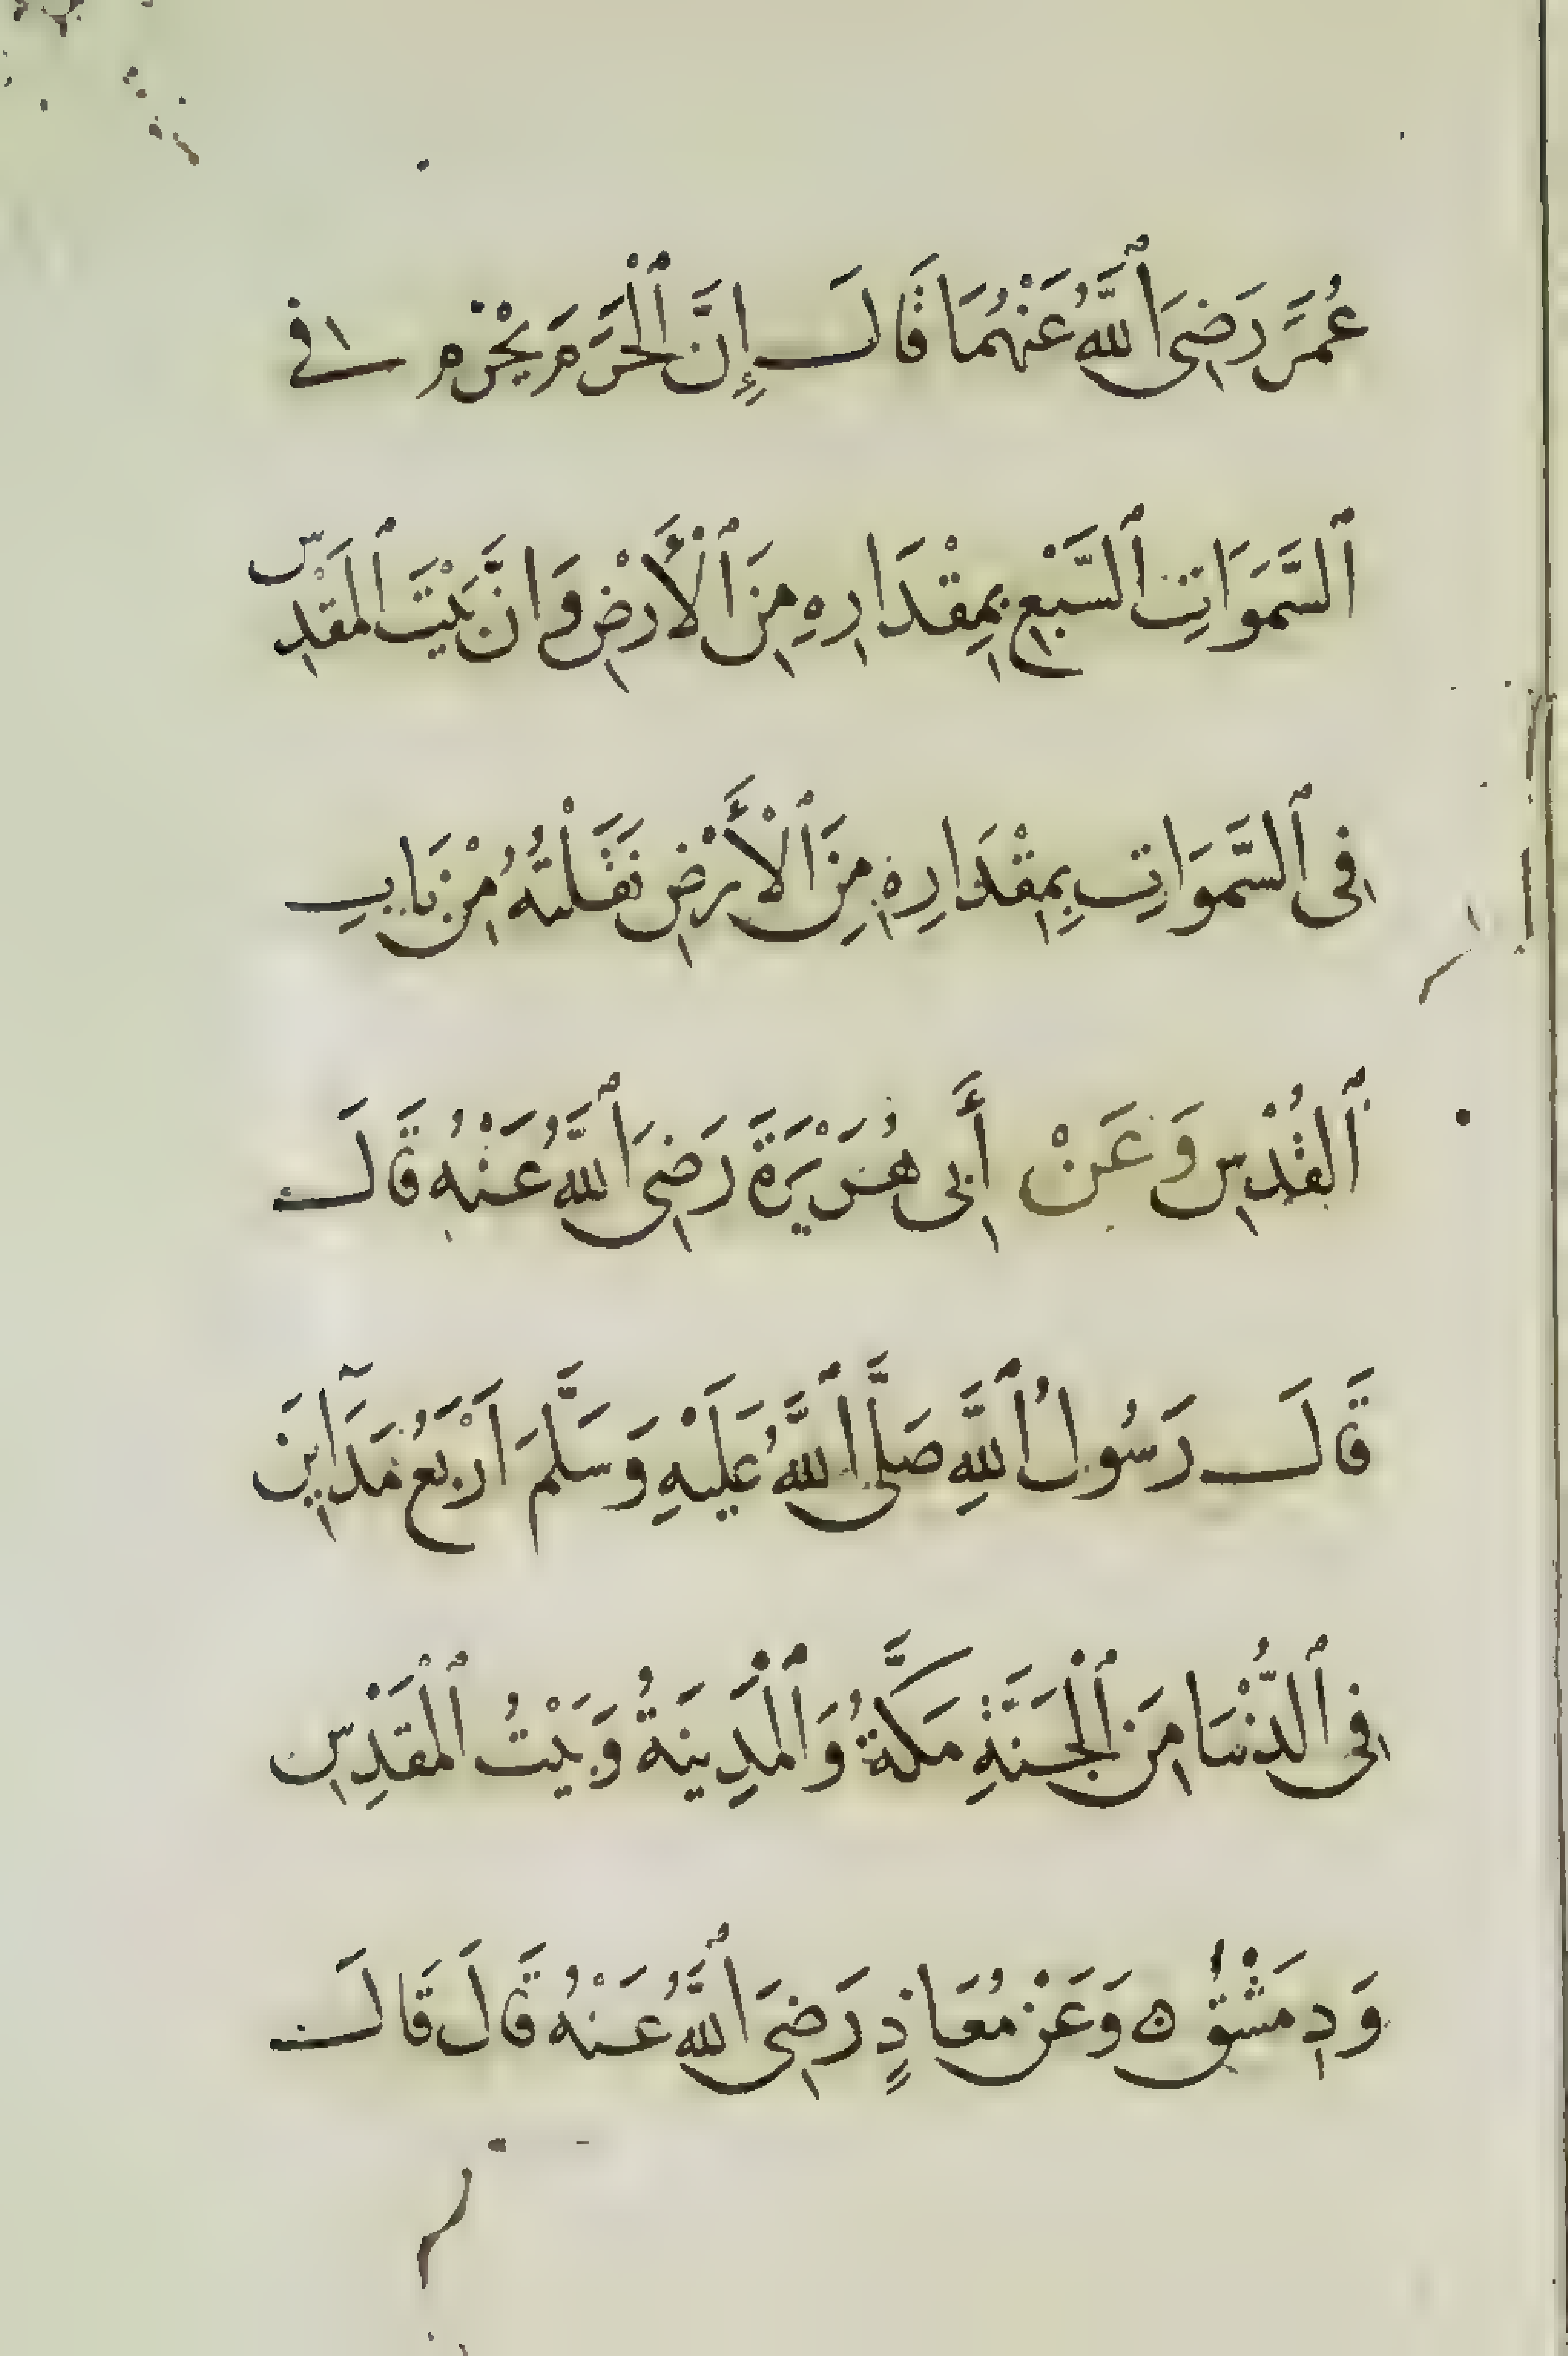 عُمَرَ رَضِىَ ٱللَّهُ عَنْهُمَا قَالَ إِنَّ ٱلْحَرَمَ يَحْرُم فى
ٱلسَّمَوَاتِ ٱلسَّبْعِ بِمِقْدَارِهِ مِنَ ٱلْأَرْضِ وَانَّ بَيْتَ ٱلمَقْدِس
فِى ٱلسَّمَوَاتِ بِمِقْدَارِهِ مِنَ ٱلْأَرْضِ نَقَلْتُهُ مِنْ بَابِ
ٱلقُدْسِ وَعَنْ أَبِى هُرَيْرَةَ رَضِىَ ٱللَّهُ عَنْهُ قَالَ
قَالَ رَسُولُ ٱللَّهِ صَلَّى ٱللَّهُ عَلَيْهِ وَسَلَّمَ اَرْبَعُ مَدَآيِنَ
فِى ٱلدُّنْيَا مِنَ ٱلْجَنَّةِ مَكَّةُ وَٱلْمَدِينَةُ وَبَيْتُ ٱلْمَقْدِسِ
وَدِمَشْقُ ه وَعَنْ مُعَاذٍ رَضِىَ ٱللَّهُ عَنْهُ قَالَ قَالَ